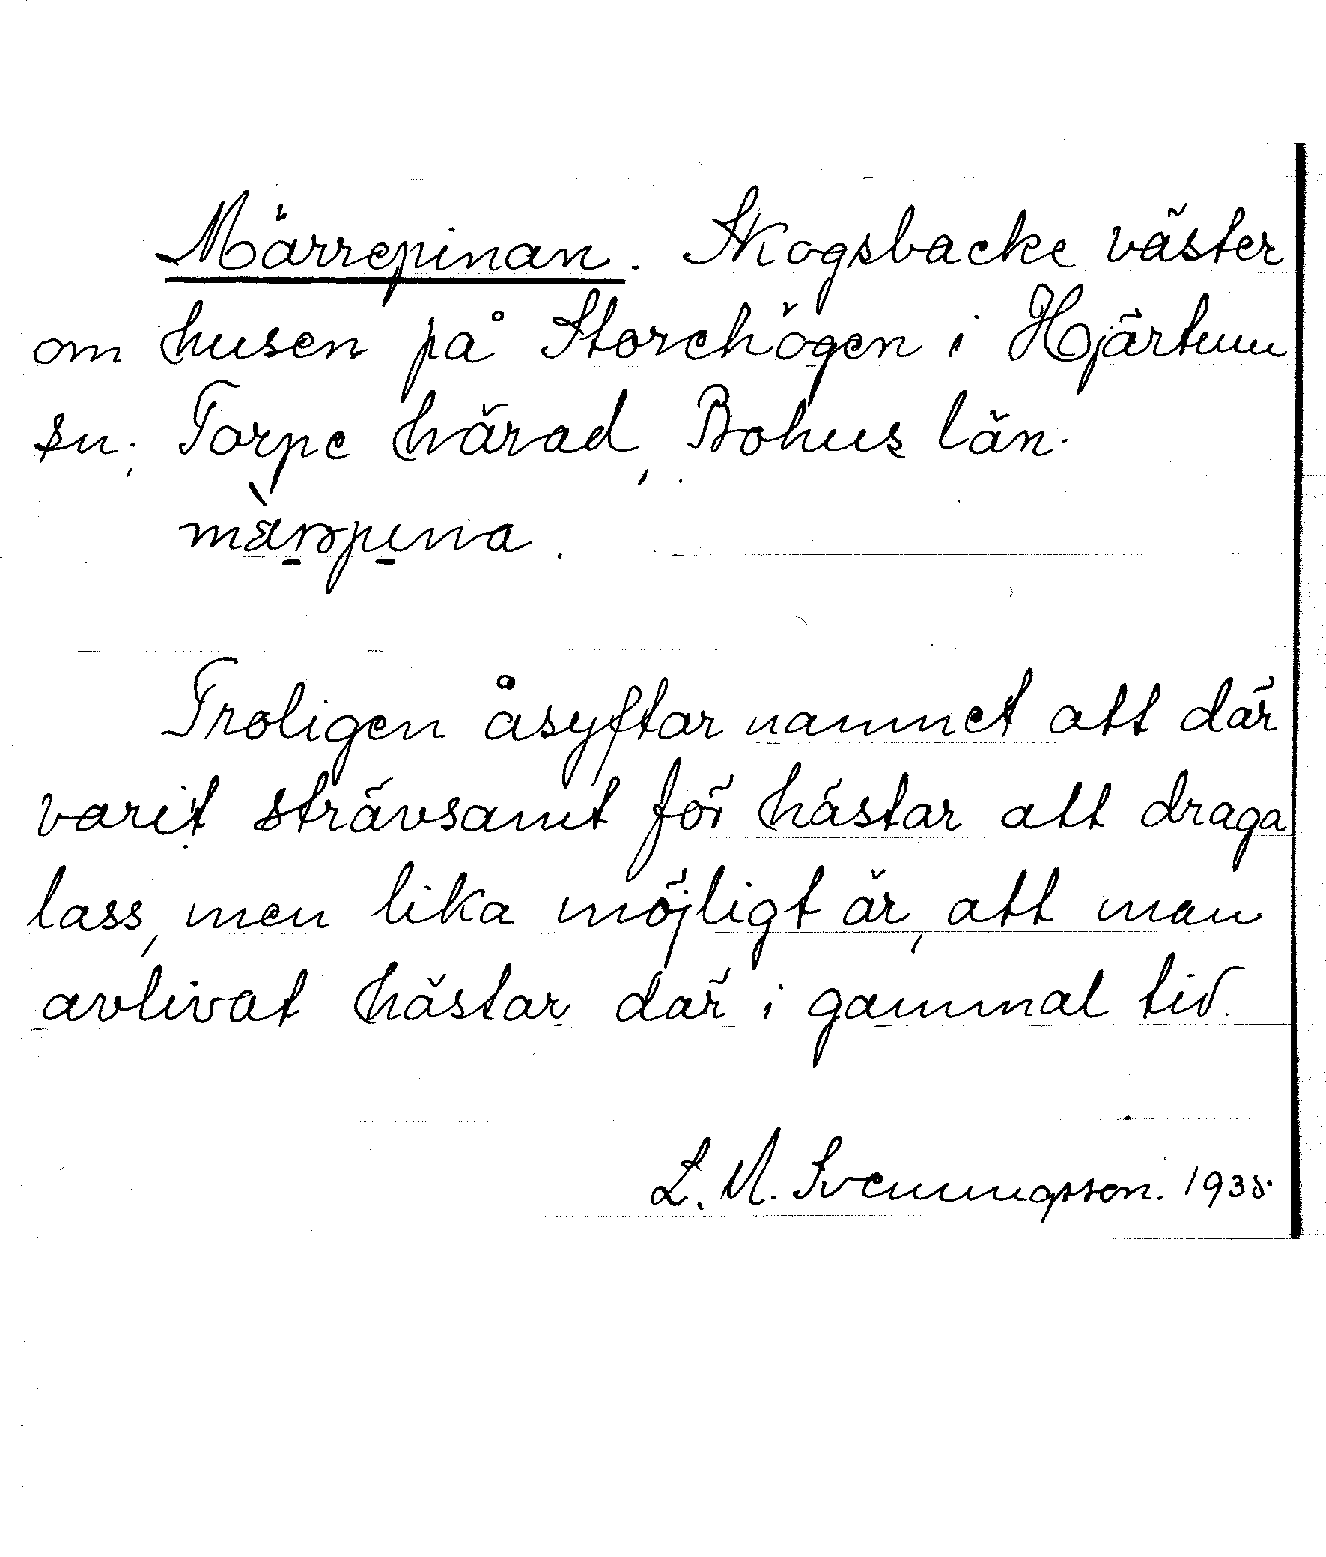 Märrepinan. Skogsbacke väster
om husen på Storehögen i Hjärtum
sn; Torpe härad, Bohus län.
Troligen åsyftar namnet att där
varit strävsamt för hästar att draga
lass, men lika möjligt är, att man
avlivat hästar där i gammal tid.
L. M. Svenungsson. 1935.